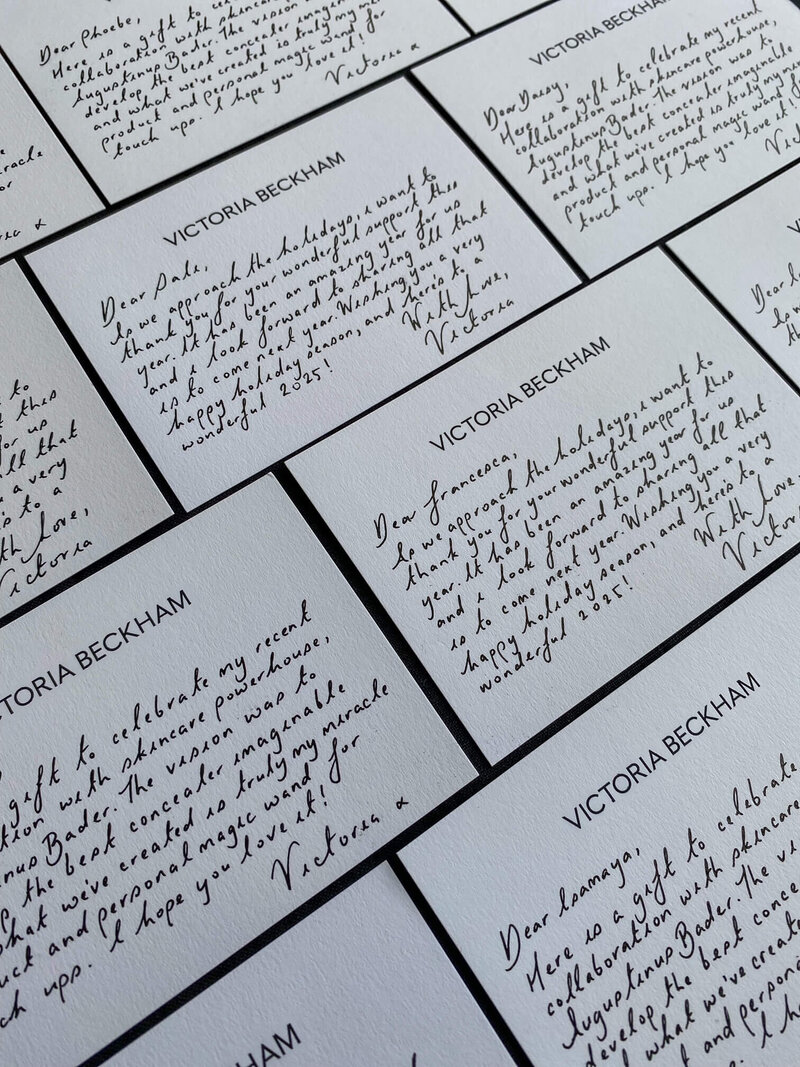 Dear Phoebe,
Here is a gift to
collaboration with skincare
Augustinus Bader. The vision
develop the best concealer imaginable
and what we've created is truly my
product and personal magic wand for
touch ups. I hope you love it!
Victoria x
VICTORIA BECKHAM
Dear Daisy,
Here is a gift to celebrate my recent
collaboration with skincare powerhouse,
Augustinus Bader. The vision was to
develop the best concealer imaginable
and what we've created is truly my
product and personal magic wand
touch ups. I hope you love it!
VICTORIA BECKHAM
Dear Dale,
As we approach the holidays, i want to
thank you for your wonderful support this
year. It has been an amazing year for us
and i look forward to sharing all that
is to come next year. Wishing you a very
happy holiday season, and here's to a
wonderful 2025!
With love,
Victoria
to
this
for us
all that
a very
to a
love,
Victoria
VICTORIA BECKHAM
Dear Francesca,
As we approach the holidays, i want to
thank you for your wonderful support this
year. It has been an amazing year for us
and i look forward to sharing all that
is to come next year. Wishing you a very
happy holiday season, and here's to a
wonderful 2025!
With love,
Victoria
TORIA BECKHAM
gift to celebrate my recent
tion with skincare powerhouse,
inus Bader. The vision was to
the best concealer imaginable
what we've created is truly my miracle
uct and personal magic wand for
ch ups. I hope you love it!
Victoria x
VICTORIA BECKHAM
Dear Isamaya,
Here is a gift to celebrate
collaboration with skincare
Augustinus Bader. The vi
develop the best conce
what we've create
and person
I ho
HAM